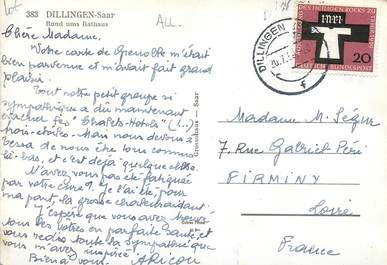 lot
383 DILLINGEN-Saar
Rund ums Rathaus
ALL.
Chère Madame,
Votre carte de Grenoble m'était
bien parvenue et m'avait fait grand
plaisir.
Tout notre petit groupe si
sympathique a dû maintenant
les "Chalets-Hôtels" (!...)
trois-étoiles. Mais nous devons à
de nous être tous connus
là-bas, et c'est déjà quelque chose.
N'avez vous pas été fatiguée
par votre cure? je l'ai été, pour
ma part, la grosse chaleur aidant
J'espère que vous avez trouvé
tous les vôtres en parfaite santé, et
vous redis toute la sympathie que
vous m'avez inspirée.
Bien à vous.
Saar
DILLINGEN
f
20
Madame M. Ségur
7, Rue Gabriel Péri
FIRMINY
Loire
France